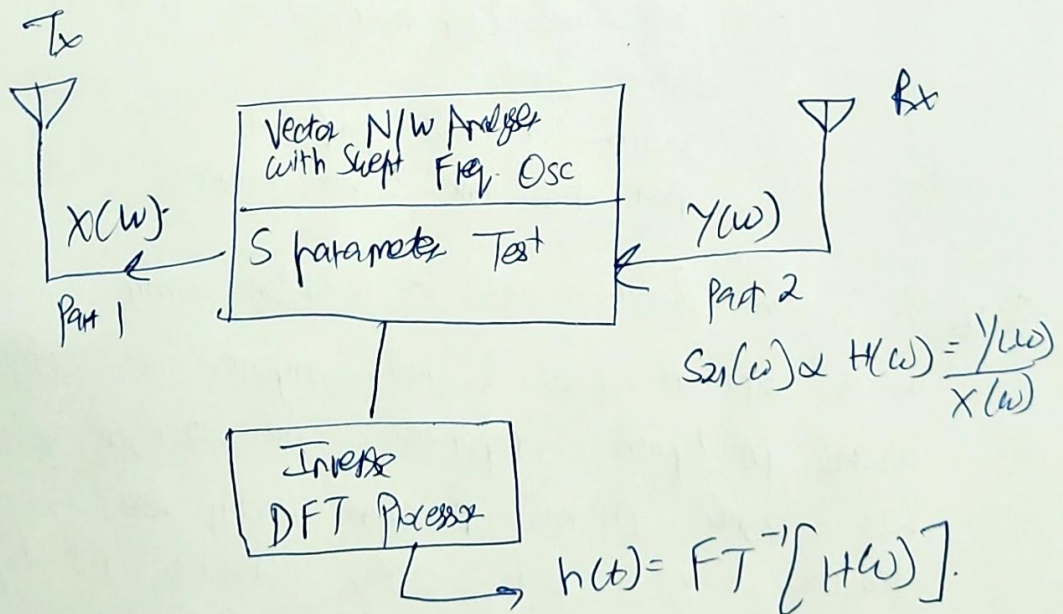 Tx
Rx
Vector N/W Analyser
with Swept Freq. Osc
X(ω)
Y(ω)
S parameter Test
Port 1
Port 2
S21(ω) ∝ H(ω) = Y(ω)/X(ω)
Inverse
DFT Processor
h(t) = FT⁻¹[H(ω)].